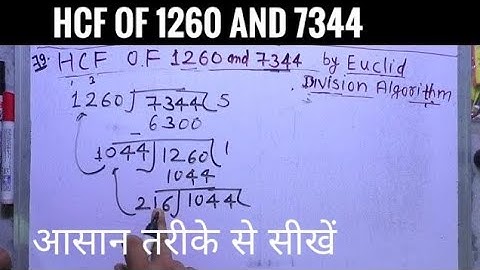 HCF OF 1260 AND 7344
39. HCF OF 1260 and 7344 by Euclid
Division Algorithm
1 3
1260) 7344 ( 5
- 6300
1044) 1260 ( 1
1044
216) 1044 (
आसान तरीके से सीखें